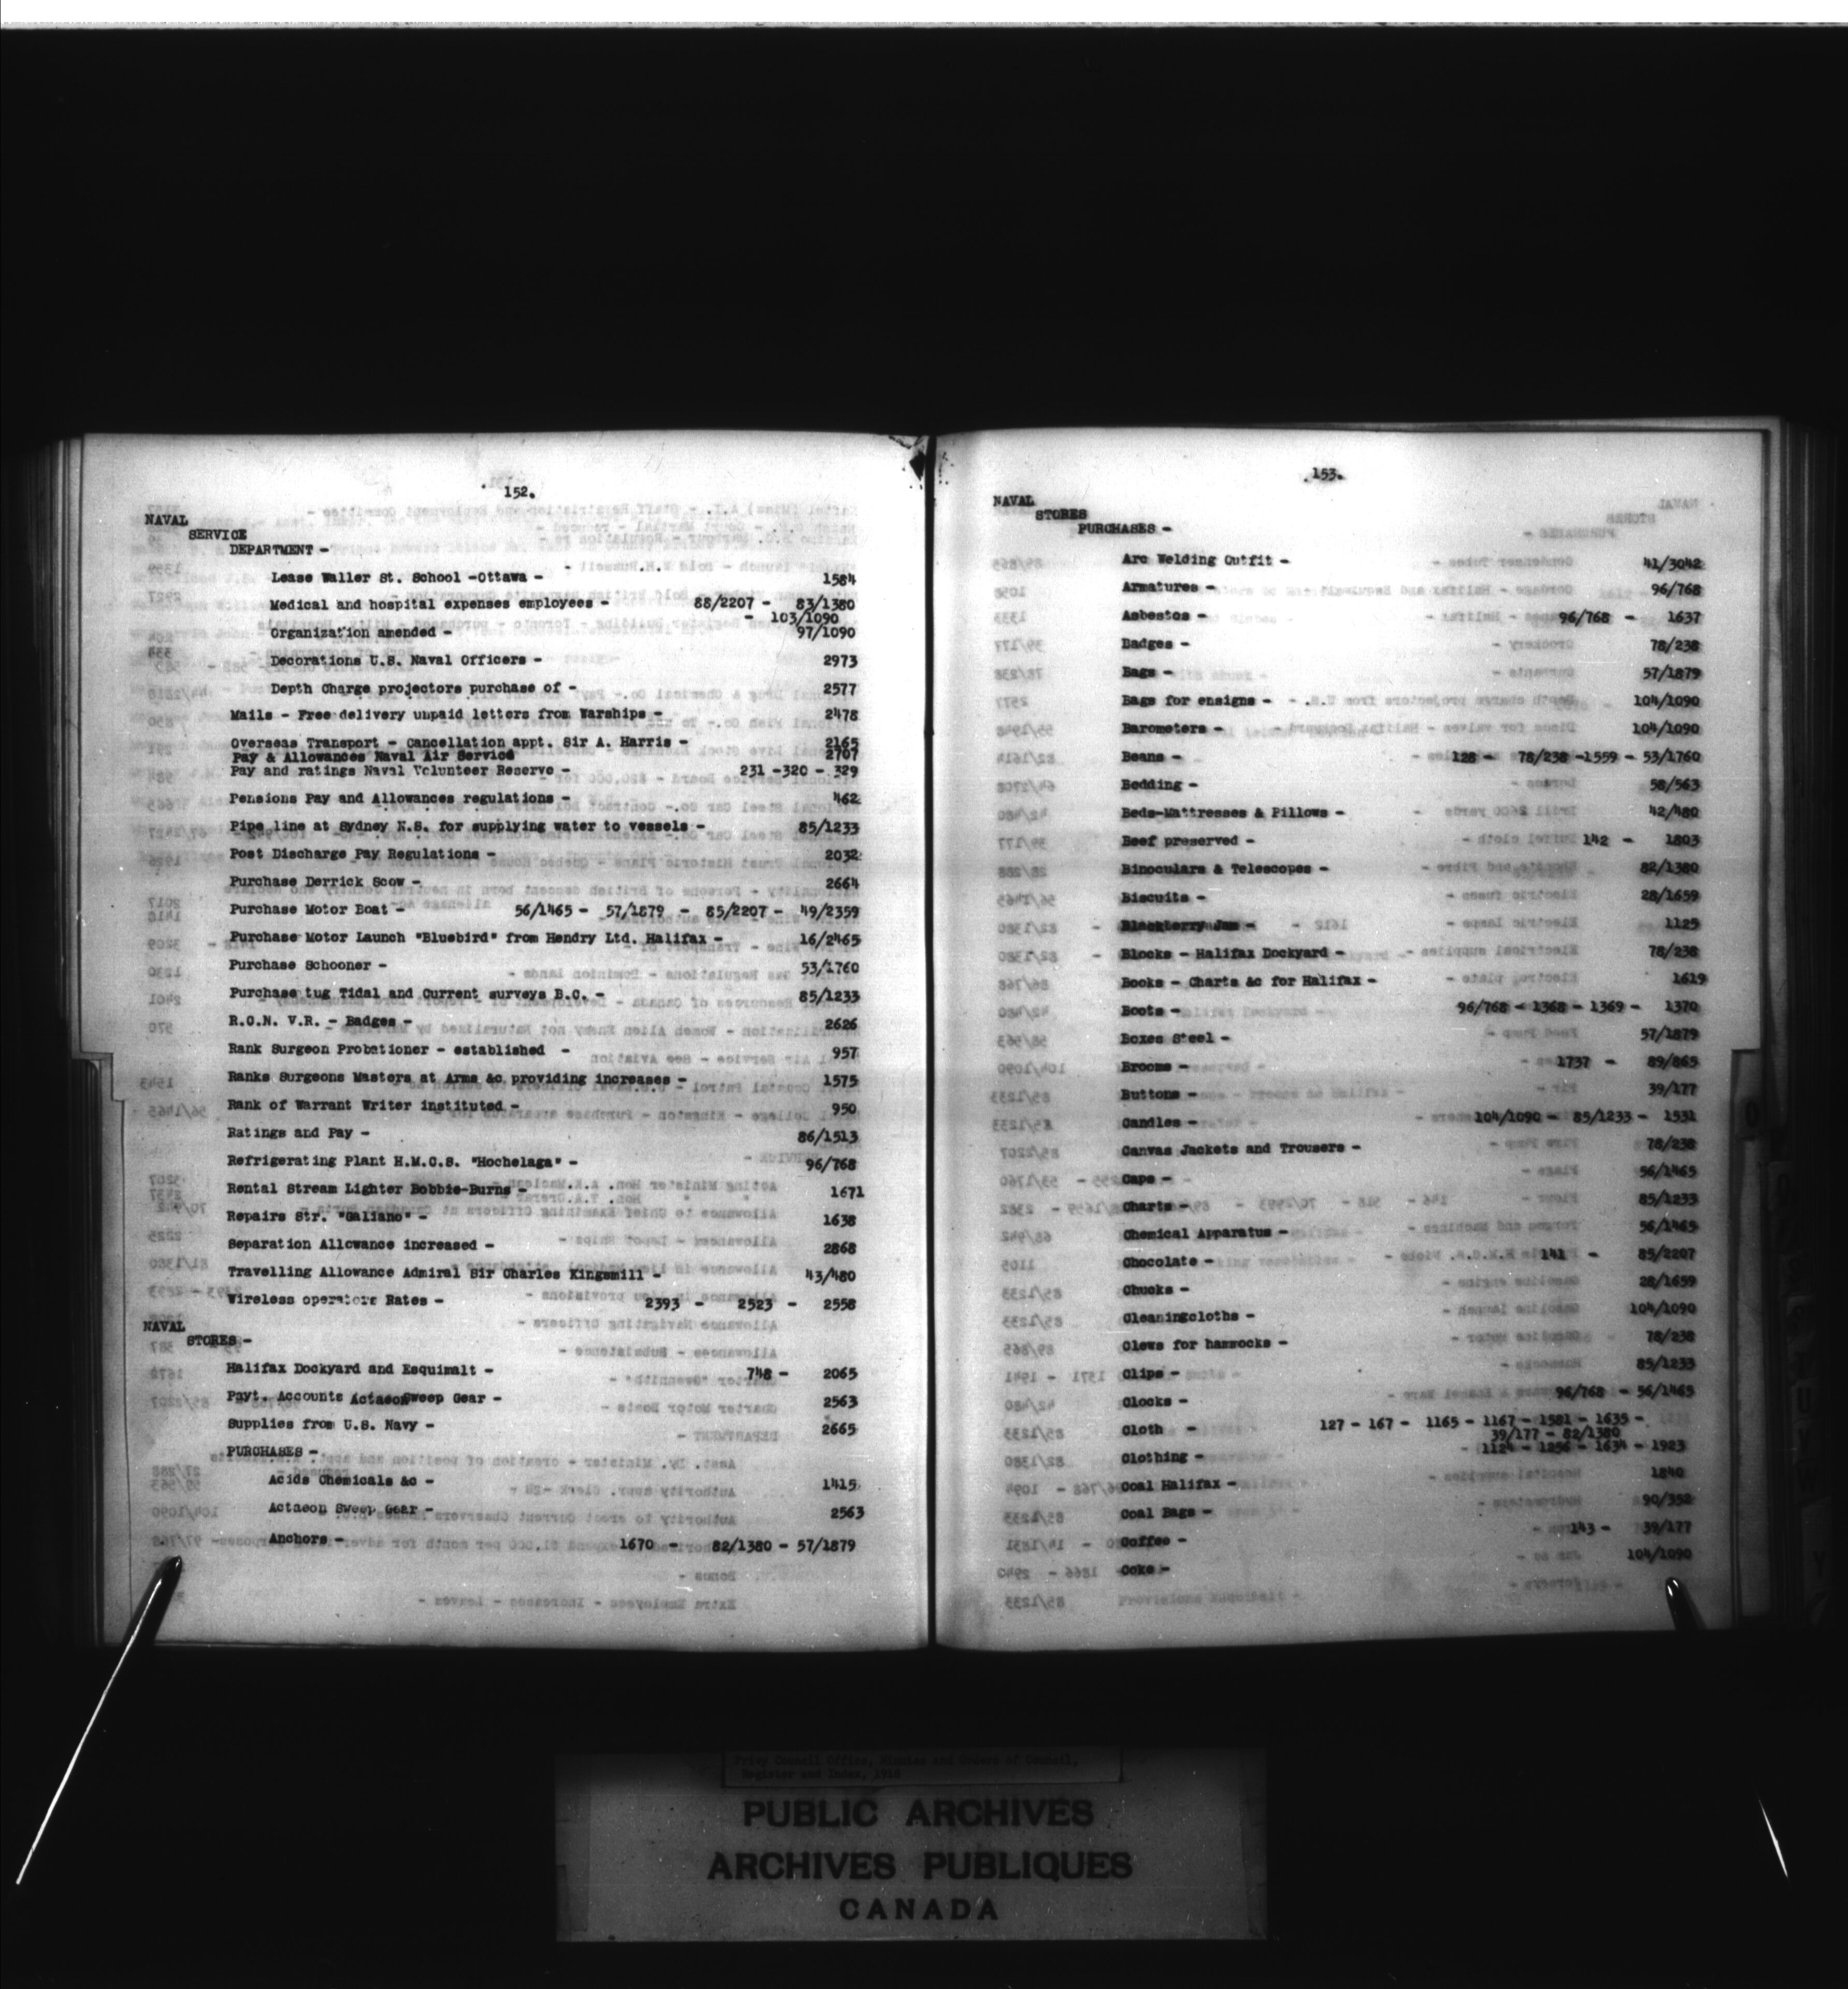 152.
NAVAL
SERVICE
DEPARTMENT -
Lease Waller St. School -Ottawa - 1584
Medical and hospital expenses employees - 88/2207 - 83/1380
- 103/1090
Organization amended - 97/1090
Decorations U.S. Naval Officers - 2973
Depth Charge projectors purchase of - 2577
Mails - Free delivery unpaid letters from Warships - 2478
Overseas Transport - Cancellation appt. Sir A. Harris - 2165
Pay & Allowances Naval Air Service 2707
Pay and ratings Naval Volunteer Reserve - 231 -320 - 329
Pensions Pay and Allowances regulations - 462
Pipe line at Sydney N.S. for supplying water to vessels - 85/1233
Post Discharge Pay Regulations - 2032
Purchase Derrick Scow - 2664
Purchase Motor Boat - 56/1465 - 57/1879 - 85/2207 - 49/2359
Purchase Motor Launch "Bluebird" from Hendry Ltd. Halifax - 16/2465
Purchase Schooner - 53/1760
Purchase tug Tidal and Current surveys B.C. - 85/1233
R.C.N. V.R. - Badges - 2626
Rank Surgeon Probationer - established - 957
Ranks Surgeons Masters at Arms &c providing increases - 1575
Rank of Warrant Writer instituted - 950
Ratings and Pay - 86/1513
Refrigerating Plant H.M.C.S. "Hochelaga" - 96/768
Rental Stream Lighter Bobbie-Burns - 1671
Repairs Str. "Galiano" - 1638
Separation Allowance increased - 2868
Travelling Allowance Admiral Sir Charles Kingsmill - 43/480
Wireless operators Rates - 2393 - 2523 - 2558
NAVAL
STORES -
Halifax Dockyard and Esquimalt - 748 - 2065
Payt. Accounts Actaeon Sweep Gear - 2563
Supplies from U.S. Navy - 2665
PURCHASES -
Acids Chemicals &c - 1415
Actaeon Sweep Gear - 2563
Anchors - 1670 - 82/1380 - 57/1879
153.
NAVAL
STORES
PURCHASES -
Arc Welding Outfit - 41/3042
Armatures - 96/768
Asbestos - 96/768 - 1637
Badges - 78/238
Bags - 57/1879
Bags for ensigns - 104/1090
Barometers - 104/1090
Beans - 128 - 78/238 -1559 - 53/1760
Bedding - 58/563
Beds-Mattresses & Pillows - 42/480
Beef preserved - 142 - 1803
Binoculars & Telescopes - 82/1380
Biscuits - 28/1659
Blackberry Jam - 1125
Blocks - Halifax Dockyard - 78/238
Books - Charts &c for Halifax - 1619
Boots - 96/768 - 1368 - 1369 - 1370
Boxes Steel - 57/1879
Brooms - 1737 - 89/865
Buttons - 39/177
Candles - 104/1090 - 85/1233 - 1531
Canvas Jackets and Trousers - 78/238
Caps - 56/1465
Charts - 85/1233
Chemical Apparatus - 56/1465
Chocolate - 141 - 85/2207
Chucks - 28/1659
Cleaningcloths - 104/1090
Clews for hammocks - 78/238
Clips - 85/1233
Clocks - 96/768 - 56/1465
Cloth - 127 - 167 - 1165 - 1167 - 1581 - 1635 -
39/177 - 82/1380
Clothing - - 1124 - 1256 - 1634 - 1923
Coal Halifax - 1840
Coal Bags - 90/352
Coffee - 143 - 39/177
Coke - 104/1090
Privy Council Office, Minutes and Orders of Council,
Register and Index, 1918
PUBLIC ARCHIVES
ARCHIVES PUBLIQUES
CANADA